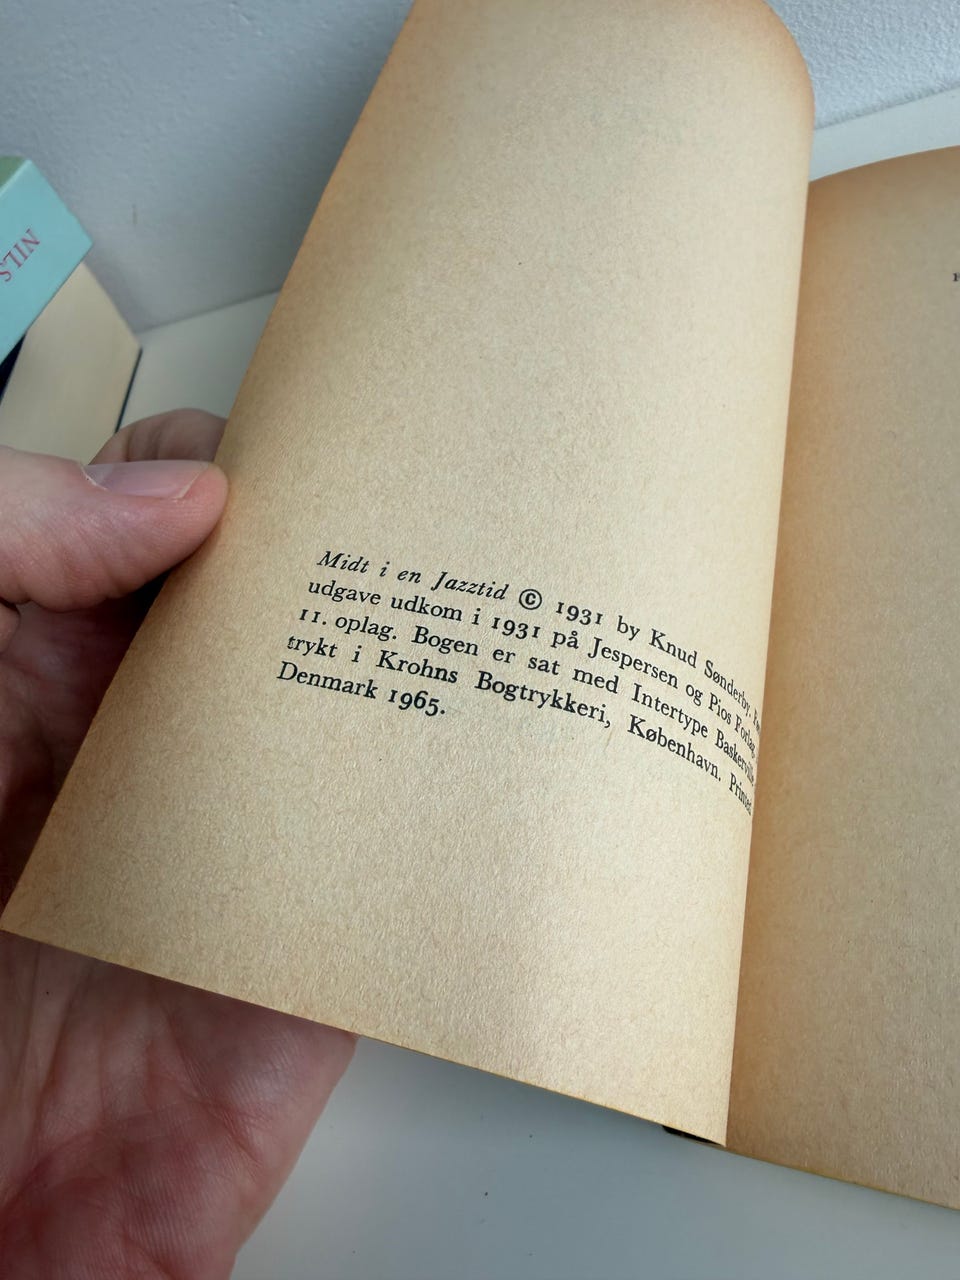 NILS
Midt i en Jazztid © 1931 by Knud Sønderby.
udgave udkom i 1931 på Jespersen og Pios Forlag.
11. oplag. Bogen er sat med Intertype Baskerville,
trykt i Krohns Bogtrykkeri, København. Printed
Denmark 1965.